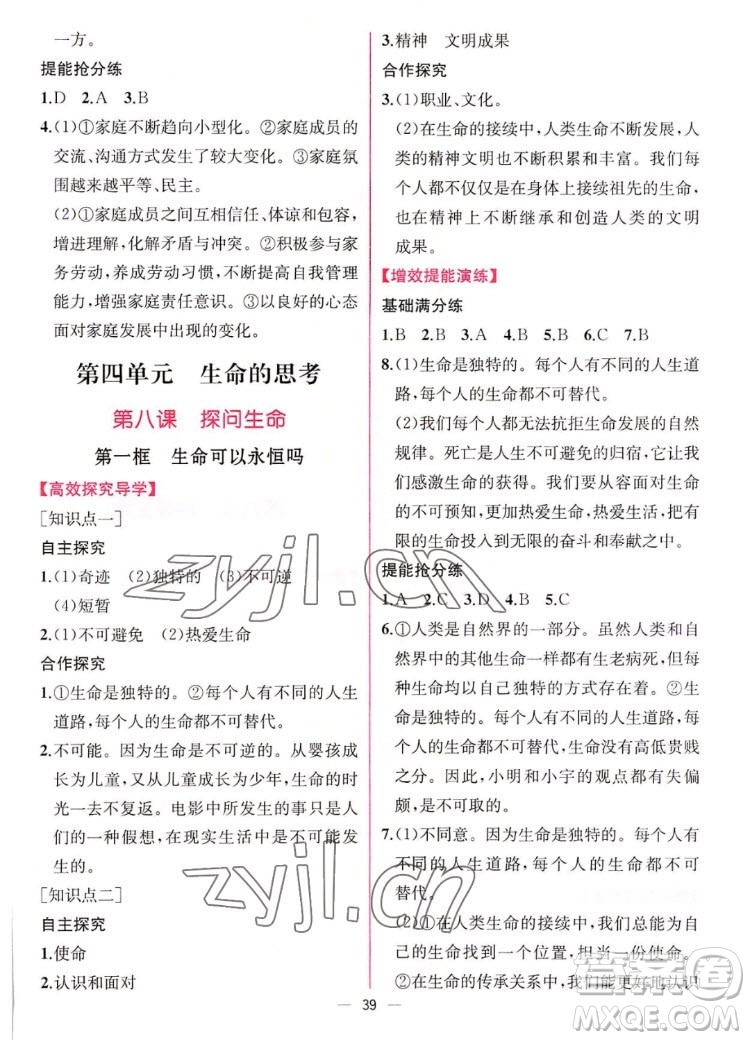 一方。
提能抢分练
1.D 2.A 3.B
4.(1)①家庭不断趋向小型化。②家庭成员的
交流、沟通方式发生了较大变化。③家庭氛
围越来越平等、民主。
(2)①家庭成员之间互相信任、体谅和包容,
增进理解,化解矛盾与冲突。②积极参与家
务劳动,养成劳动习惯,不断提高自我管理
能力,增强家庭责任意识。③以良好的心态
面对家庭发展中出现的变化。
第四单元 生命的思考
第八课 探问生命
第一框 生命可以永恒吗
【高效探究导学】
[知识点一]
自主探究
1.(1)奇迹 (2)独特的 (3)不可逆
(4)短暂
2.(1)不可避免 (2)热爱生命
合作探究
1.①生命是独特的。②每个人有不同的人生
道路,每个人的生命都不可替代。
2.不可能。因为生命是不可逆的。从婴孩成
长为儿童,又从儿童成长为少年,生命的时
光一去不复返。电影中所发生的事只是人
们的一种假想,在现实生活中不可能发
生的。
[知识点二]
自主探究
1.使命
2.认识和面对
3.精神 文明成果
合作探究
3.(1)职业、文化。
(2)在生命的接续中,人类生命不断发展,人
类的精神文明也不断积累和丰富。我们每
个人不仅仅是在身体上接续祖先的生命,
也在精神上不断继承和创造人类的文明
成果。
【增效提能演练】
基础满分练
1.B 2.B 3.A 4.B 5.B 6.C 7.B
8.(1)生命是独特的。每个人有不同的人生道
路,每个人的生命都不可替代。
(2)我们每个人都无法抗拒生命发展的自然
规律。死亡是人不可避免的归宿,它让我
们感激生命的获得。我们要从容面对生命
的不可预知,更加热爱生命,热爱生活,把有
限的生命投入到无限的奋斗和奉献之中。
提能抢分练
1.A 2.C 3.D 4.B 5.C
6.①人类是自然界的一部分。虽然人类和自
然界中的其他生命一样都有生老病死,但每
种生命都以独特的方式存在着。②生命是
独特的。每个人有不同的人生道路,每个人
的生命都不可替代,生命都没有高低贵贱
之分。因此,小明和小宇的观点都有失偏
颇,是不可取的。
7.(1)不同意。因为生命是独特的。每个人有
不同的人生道路,每个人的生命都不可
替代。
(2)①在人类生命的接续中,我们总能为自
己的生命找到一个位置,担当一份使命。
②在生命的传承关系中,我们能更好地认识
39
zyjl.cn
zyjl.cn
答案圈
MXQE.COM